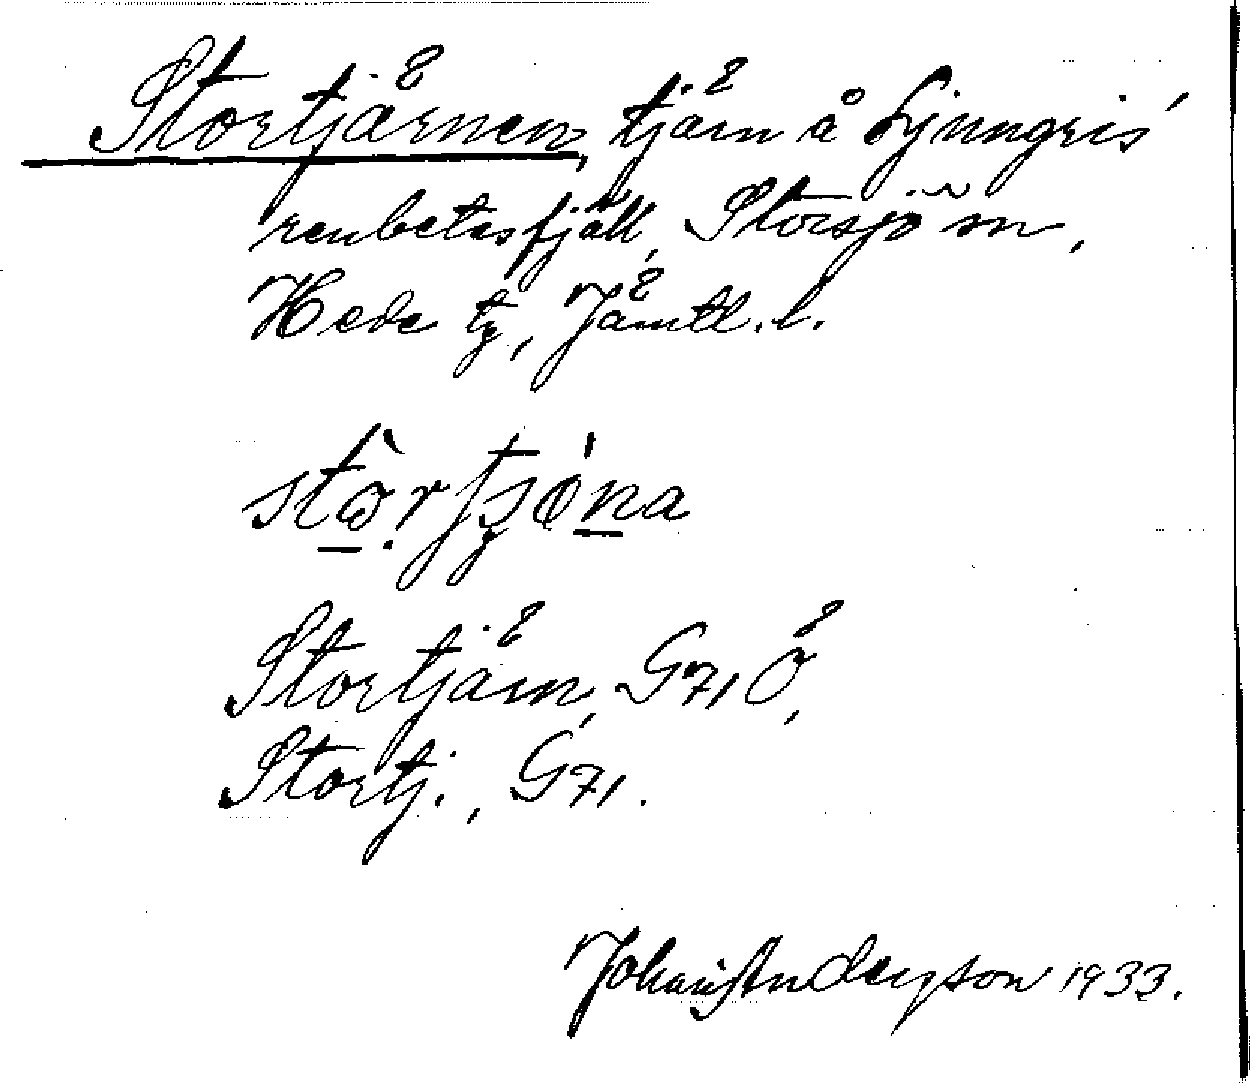 Stortjärnen, tjärn å Ljungris'
renbetesfjäll, Storsjö sn,
Hede tg, Jämtl. l.
Stortjärn, G71 Ö,
Stortj., G71.
Johan Anderson 1933.